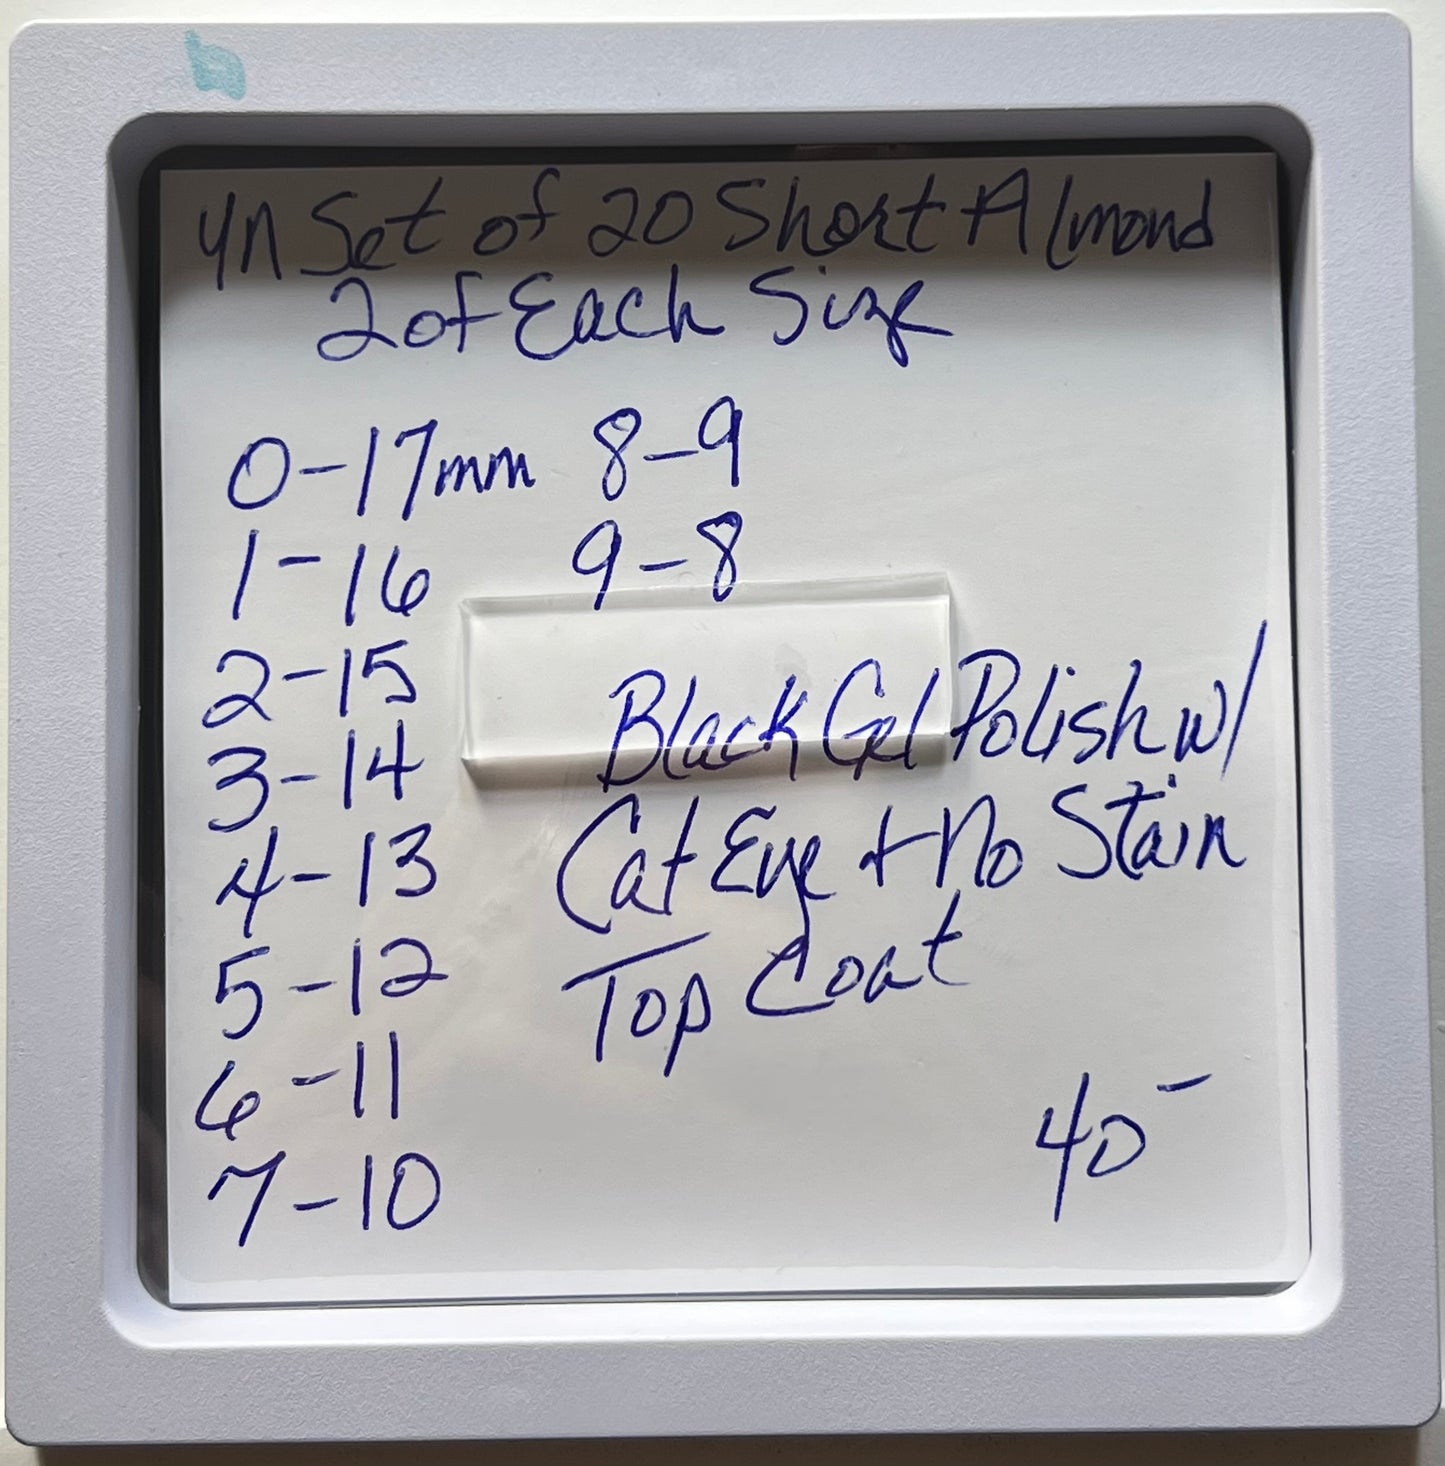 yn Set of 20 Short Almond
2 of Each Size
0-17mm
1-16
2-15
3-14
4-13
5-12
6-11
7-10
8-9
9-8
Black Gel Polish w/
Cat Eye + No Stain
Top Coat
40-